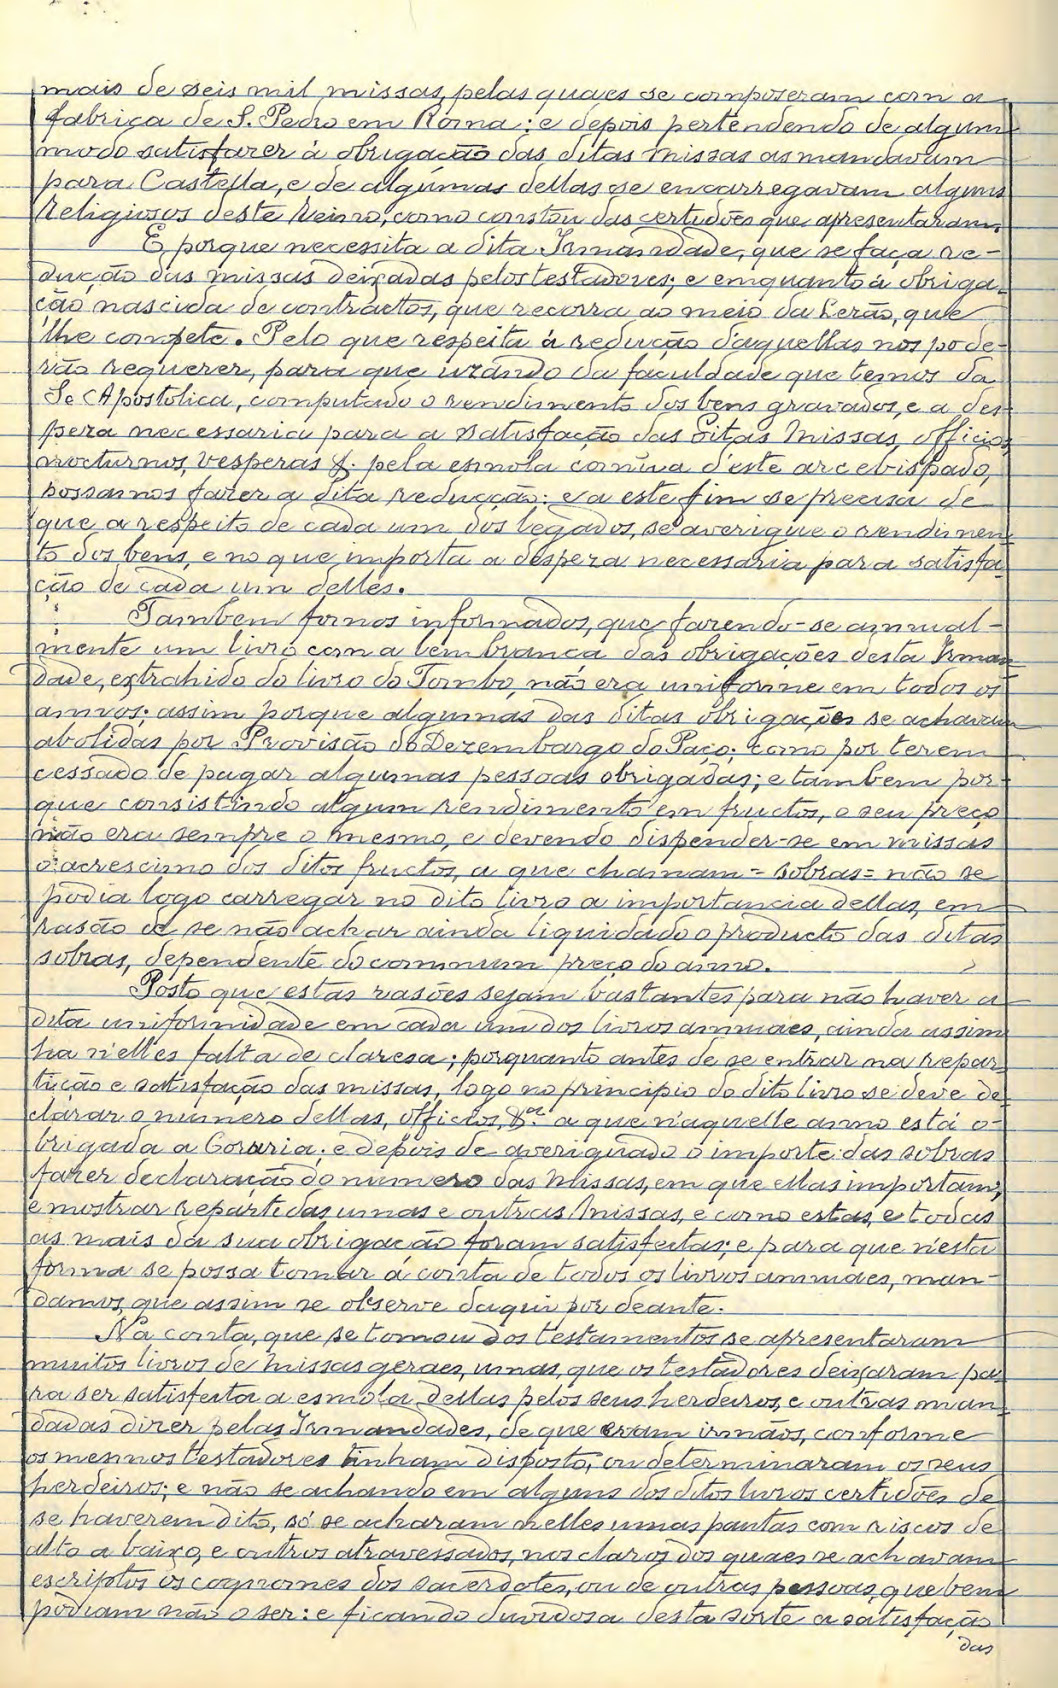 mais de seis mil missas, pelas quaes se composeram com a
fabrica de S. Pedro em Roma: e depois pertendendo de algum
modo satisfazer á obrigação das ditas missas as mandavam
para Castella, e de algumas dellas se encarregavam alguns
Religiosos deste Reino, como constou das certidões que apresentaram.
E porque necessita a dita Irmandade, que se faça re-
ducção das missas deixadas pelos testadores; e emquanto á obriga-
ção nascida de contractos, que recorra ao meio da Lezão, que
lhe compete. Pelo que respeita á reducção d'aquellas nos pode-
rão requerer, para que uzando da faculdade que temos da
Sé Apostolica, computado o rendimento dos bens gravados, e a des-
peza necessaria para a satisfação das ditas Missas, officios
nocturnos, vesperas &. pela esmola comūa d'este arcebispado,
possamos fazer a dita reducção: e a este fim se precisa de
que a respeito de cada um dos legados, se averigue o rendimen-
to dos bens, e no que importa a despeza necessaria para satisfa-
ção de cada um delles.
Tambem fomos informados, que fazendo-se annual-
mente um livro com a lembrança das obrigações desta Irman-
dade, extrahido do livro do Tombo, não era uniforme em todos os
annos; assim porque algumas das ditas obrigações se achavam
abolidas por Provisão do Dezembargo do Paço; como por terem
cessado de pagar algumas pessoas obrigadas; e tambem por-
que consistindo algum rendimento em fructos, o seu preço
não era sempre o mesmo, e devendo dispender-se em missas
o acrescimo dos ditos fructos, a que chamam = sobras = não se
podia logo carregar no dito livro a importancia dellas, em
rasão de se não achar ainda liquidado o producto das ditas
sobras, dependente do commum preço do anno.
Posto que estas rasões sejam bastantes para não haver a
dita uniformidade em cada um dos livros annuaes, ainda assim
ha n'elles falta de claresa; porquanto antes de se entrar na repar-
tição e satisfação das missas, logo no principio do dito livro se deve de-
clarar o numero dellas, officios, &ª. a que n'aquelle anno está o-
brigada a Coraria; e depois de averiguado o importe das sobras
fazer declaração do numero das Missas, em que ellas importam;
e mostrar repartidas umas e outras Missas, e como estas, e todas
as mais da sua obrigação foram satisfeitas; e para que n'esta
forma se possa tomar á conta de todos os livros annuaes, man-
damos, que assim se observe daqui por deante.
Na conta, que se tomou dos testamentos se apresentaram
muitos livros de Missas geraes, umas, que os testadores deixaram pa-
ra ser satisfeita a esmola dellas pelos seus herdeiros, e outras man-
dadas dizer pelas Irmandades, de que eram irmãos, conforme
os mesmos testadores tinham disposto, ou determinaram os seus
herdeiros; e não se achando em alguns dos ditos livros certidões de
se haverem dito, só se acharam nelles umas pautas com riscos de
alto a baixo, e outros atravessados, nos claros dos quaes se achavam
escriptos os cognomes dos sacerdotes, ou de outras pessoas, que bem
podiam não o ser: e ficando duvidosa desta sorte a satisfação
das